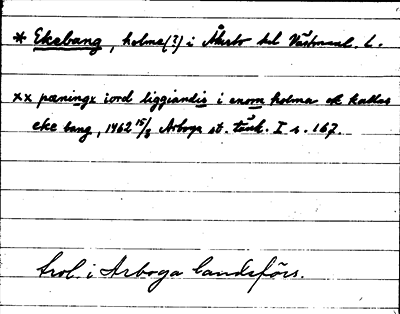 * Ekebang, holme(?) i Åkerbo hd Västmanl. l.
xx pæningx iord liggiandis i enom holma ok kallas
eke bang, 1462 15/8 Arboga st. tänk. I s. 167.
trol. i Arboga landsförs.